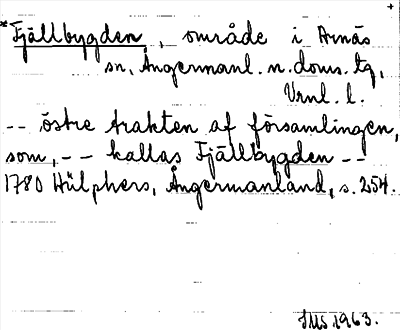 *Fjällbygden, område i Arnäs +
sn, Ångermanl. n. doms. tg,
Vrnl. l.
-- östre trakten af församlingen,
som, -- kallas Fjällbygden --
1780 Hülphers, Ångermanland, s. 254.
JMS 1963.